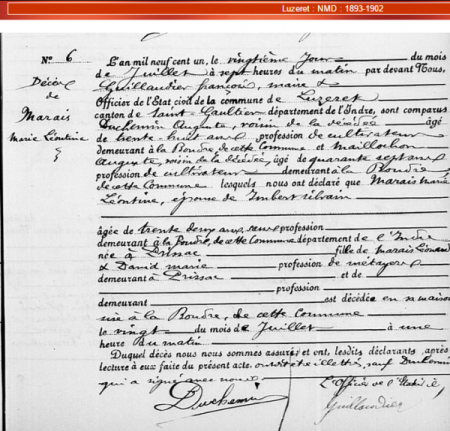 Luzeret : NMD : 1893-1902
N° 6
Décès
de
Marais
Marie Léontine
L'an mil neuf cent un, le vingtième jour du mois
de Juillet à sept heures du matin par devant Nous,
Guillaudier françois, maire &
Officier de l'État civil de la commune de Luzeret
canton de Saint-Gaultier département de l'Indre, sont comparus
Duchemin Auguste, voisin de la décédée âgé
de trente huit ans, profession de cultivateur
demeurant à la Boudre de cette Commune et Maillochon
Auguste, voisin de la décédée, âgé de quarante sept ans
profession de cultivateur demeurant à la Boudre,
de cette Commune lesquels nous ont déclaré que Marais Marie
Léontine, épouse de Imbert Silvain
âgée de trente deux ans, sans profession
demeurant à la Boudre, de cette Commune département de l'Indre
née à Prissac fille de Marais Léonard
& David Marie profession de métayers
demeurant à Prissac et de
profession
demeurant est décédée en sa maison
sise à la Boudre, de cette Commune
le vingt du mois de Juillet à une
heure du matin
Duquel décès nous nous sommes assuré; et ont, lesdits déclarants, après
lecture à eux faite du présent acte. sauf Duchemin
qui a signé avec nous
L'Officier de l'État civil,
Duchemin
Guillaudier